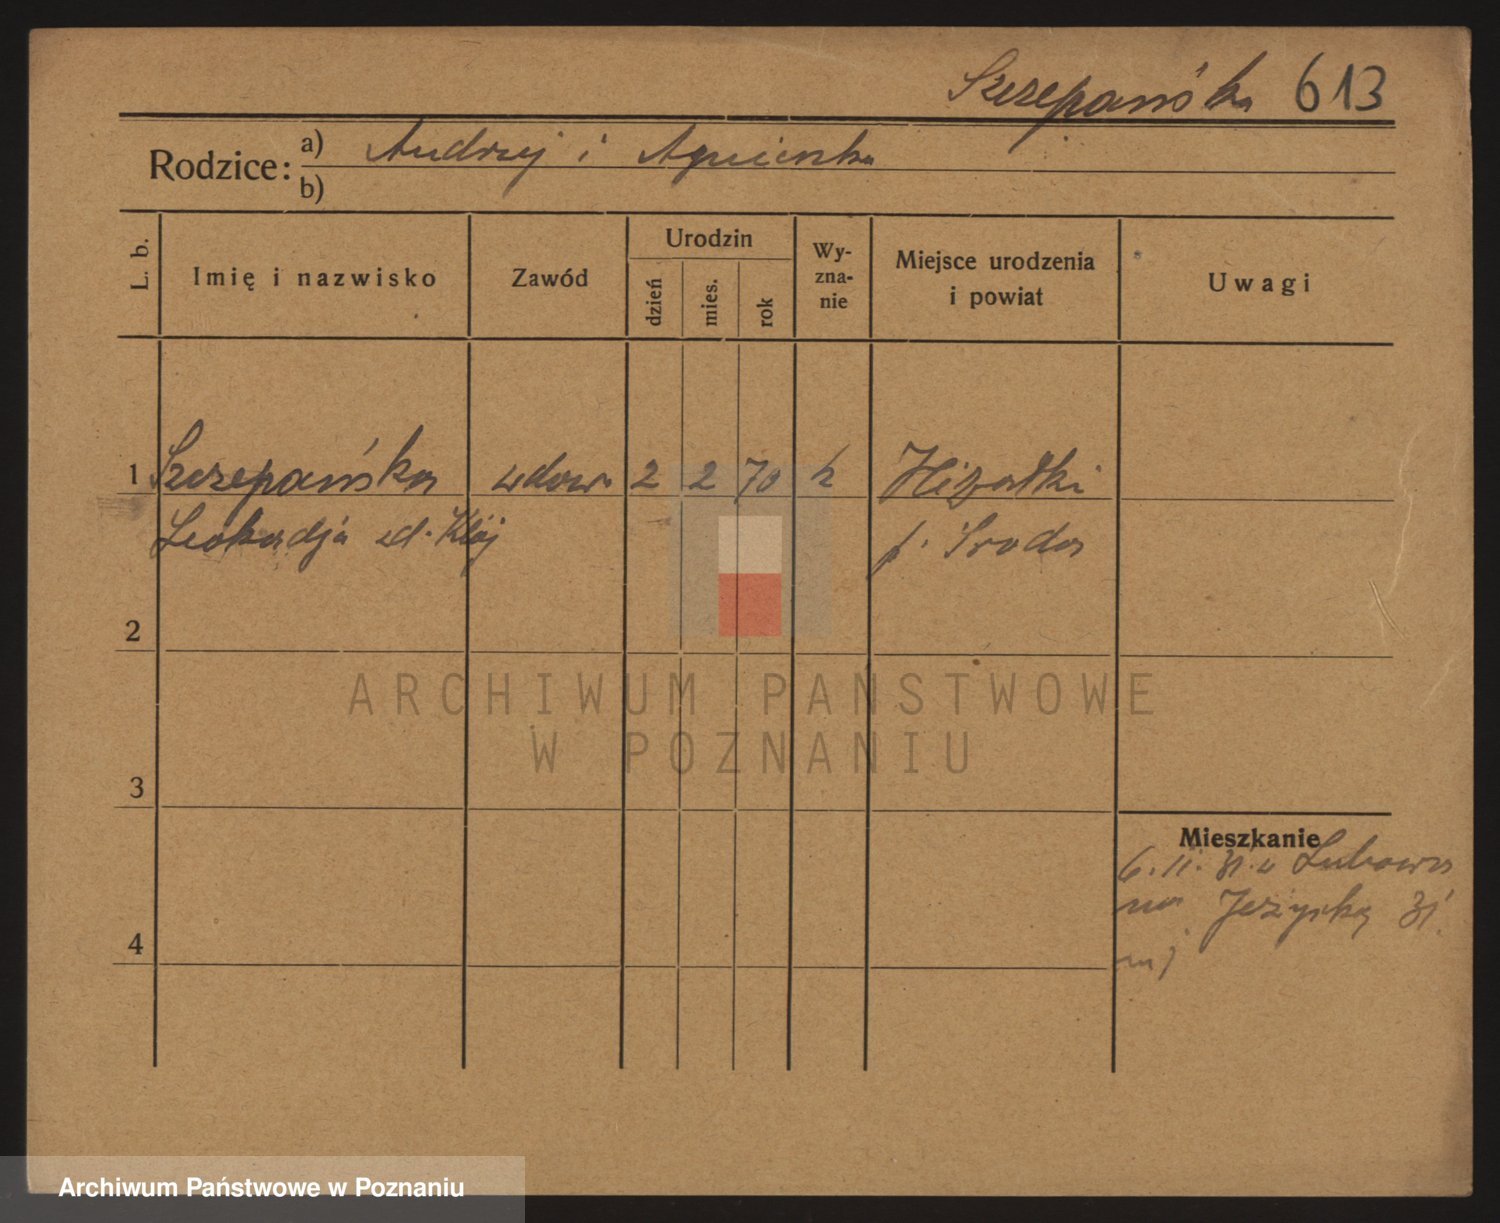 Szczepańska 613
Rodzice: a) Andrzej i Agnieszka
b)
L. b.
Imię i nazwisko
Zawód
Urodzin
dzień
mies.
rok
Wy-
zna-
nie
Miejsce urodzenia
i powiat
Uwagi
1 Szczepańska wdowa 2 2 70 k
Leokadja p. Środa
2
3
4
Mieszkanie
6.11.31 z Lubowa
na Jeżycką 31.
ARCHIWUM PAŃSTWOWE
W POZNANIU
Archiwum Państwowe w Poznaniu